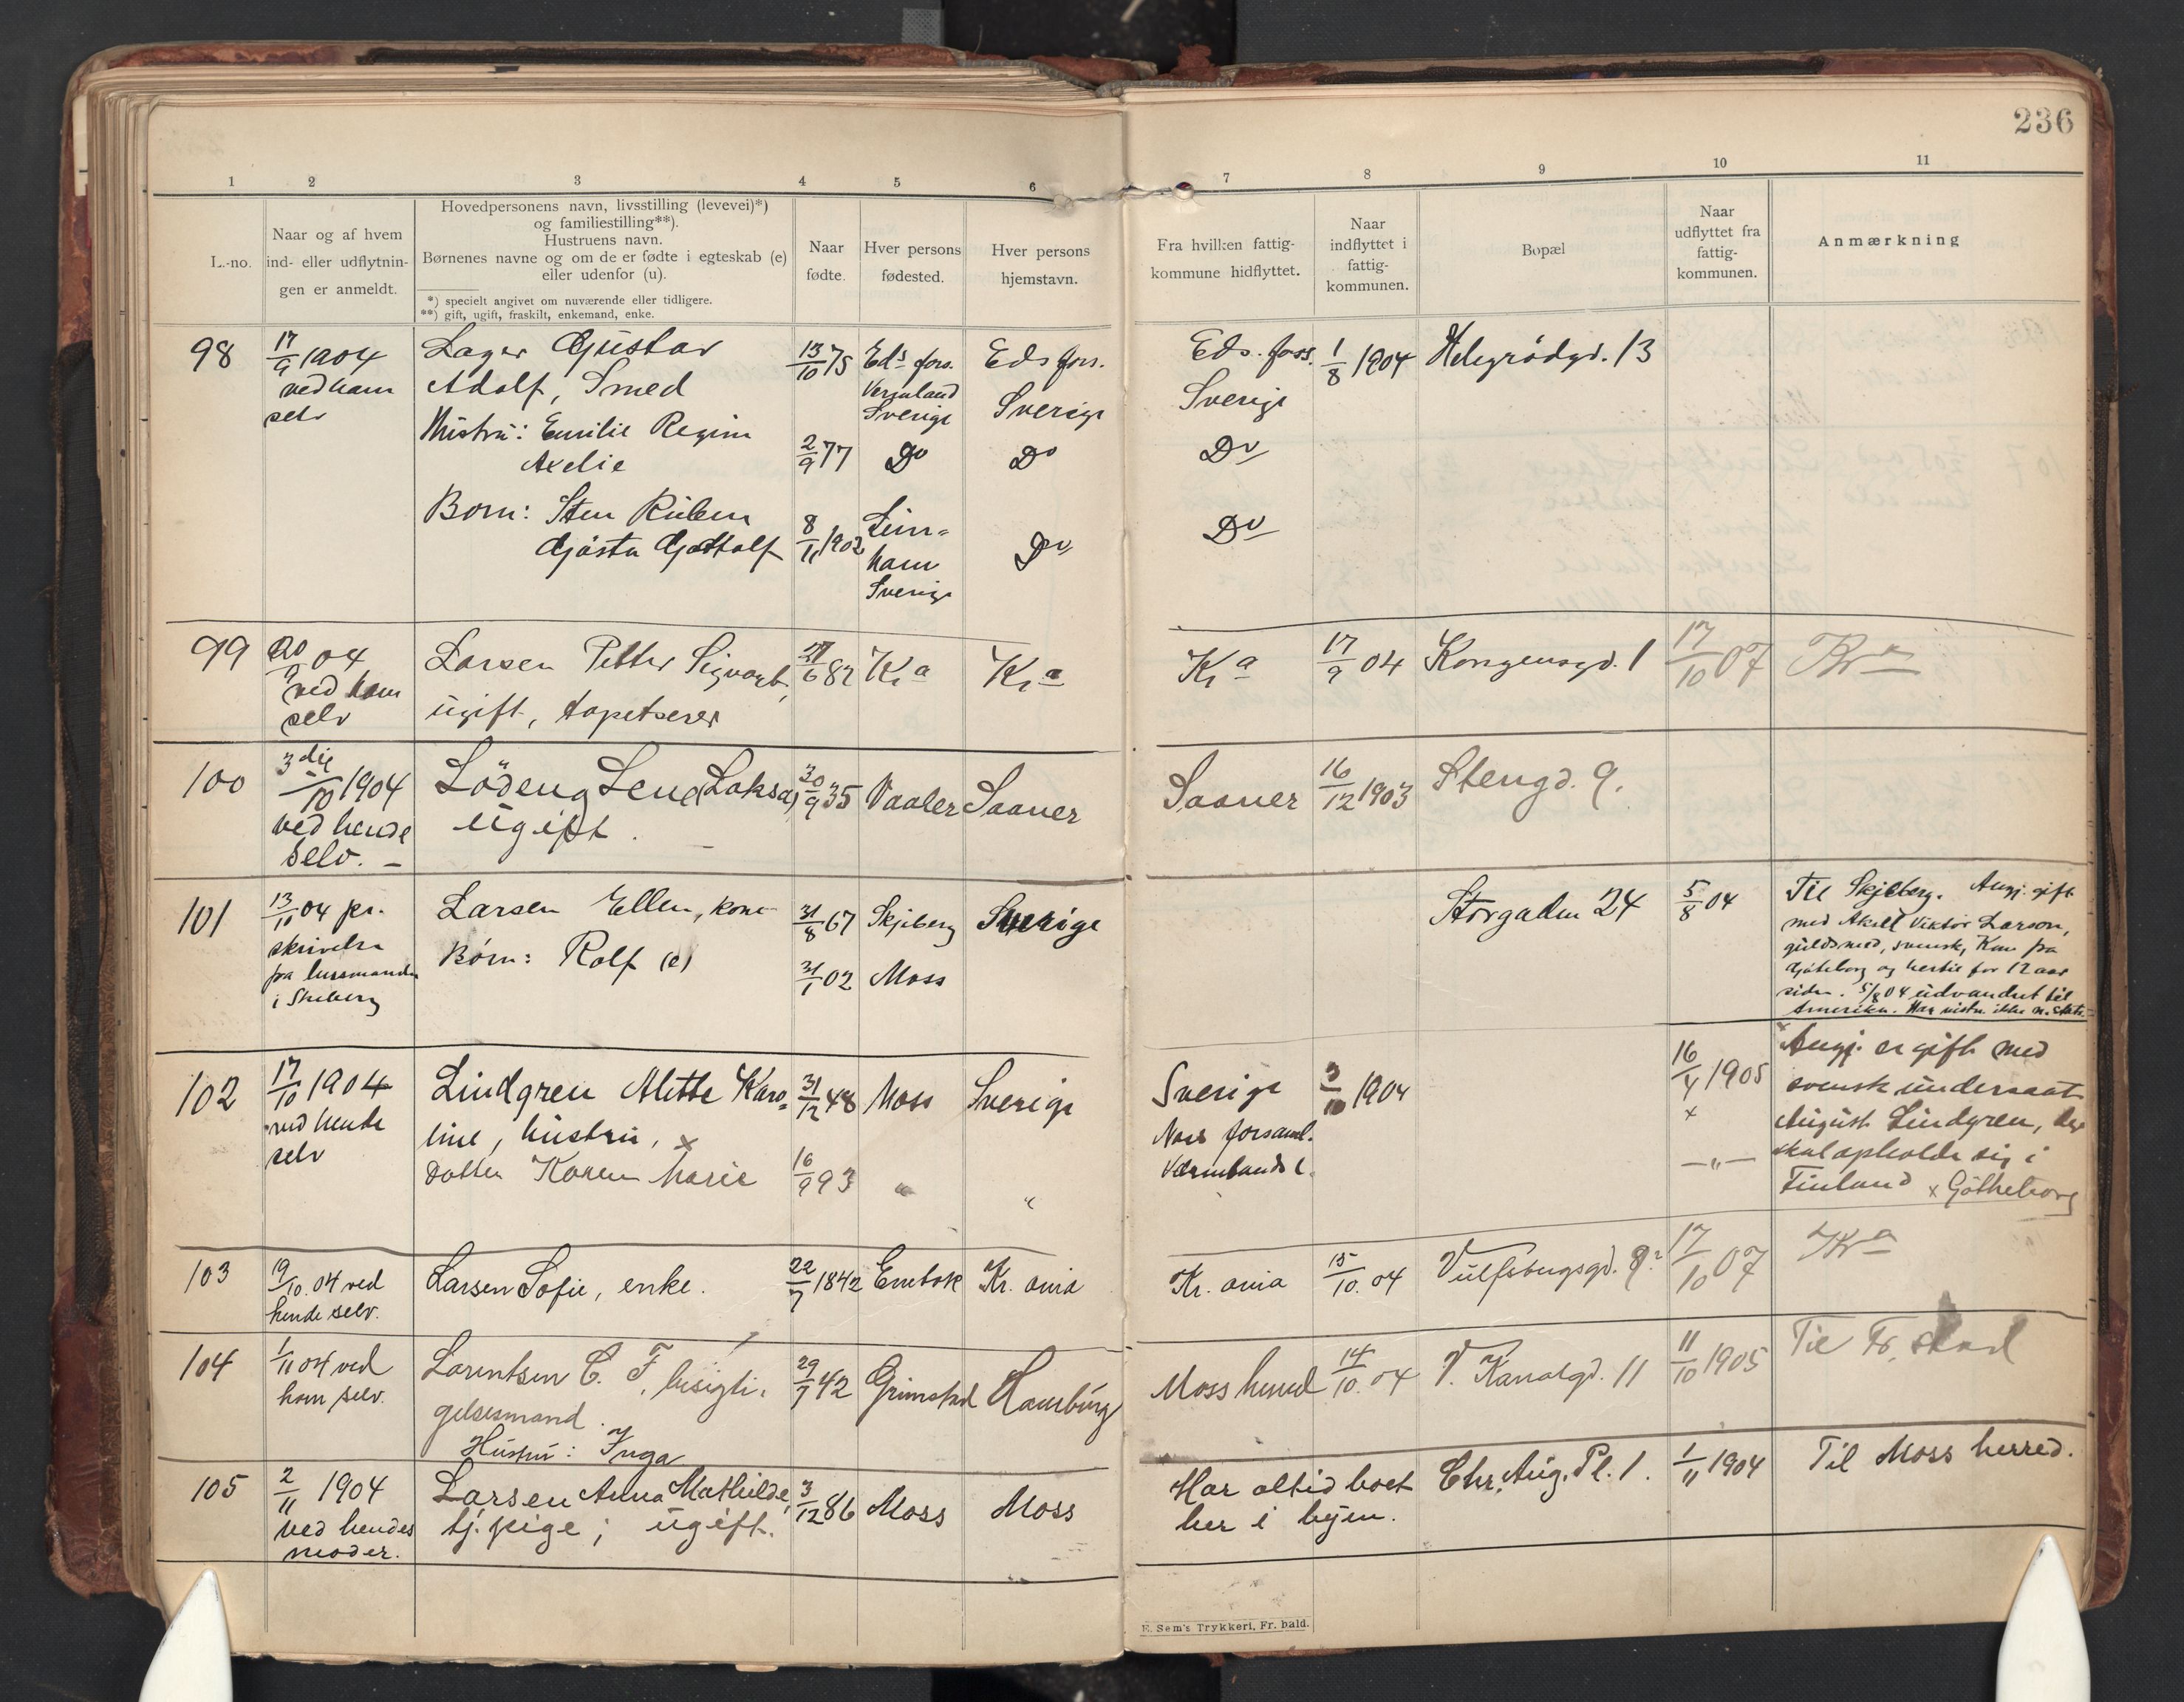 236
1 2 3 4 5 6 7 8 9 10 11
L.-no.
Naar og af hvem
ind- eller udflytnin-
gen er anmeldt.
Hovedpersonens navn, livsstilling (levevei)*)
og familiestilling**).
Hustruens navn.
Børnenes navne og om de er fødte i egteskab (e)
eller udenfor (u).
*) specielt angivet om nuværende eller tidligere.
**) gift, ugift, fraskilt, enkemand, enke.
Naar
fødte.
Hver persons
fødested.
Hver persons
hjemstavn.
Fra hvilken fattig-
kommune hidflyttet.
Naar
indflyttet i
fattig-
kommunen.
Bopæl
Naar
udflyttet fra
fattig-
kommunen.
Anmærkning
98
17/9 1904
ved ham
selv
Lager Gustav
Adolf, Smed
Hustru: Emilie Regina
Axelie
Børn: Sten Ruben
Gösta Gottolf
13/10 75
2/9 77
8/11 1902
Eds fors.
Vermland
Sverige
Do
Lim=
ham
Sverige
Eds fors.
Sverige
Do
Do
Eds. foss.
Sverige
Do
Do
1/8 1904
Helgrødgd. 13
99
20/9 04
ved ham
selv
Larsen Petter Sigvart,
ugift, tapetserer
27/6 82
Kra
Kra
Kra
17/9 04
Kongensgd. 1
17/10 07
Kra
100
3die/10 1904
ved hende
selv. –
Lödeng Lene (Laksa)
ugift.
30/9 35
Vaaler
Saaner
Saaner
16/12 1903
Stengd. 9.
101
13/10 04 pr.
skrivelse
fra lensmanden
i Skeberg
Larsen Ellen, kone
Børn: Rolf (e)
31/8 67
31/1 02
Skjeberg
Moss
Sverige
Storgaden 24
5/8 04
Til Skjeberg. Angj. gift
med Aksel Viktor Larson,
guldsmed, svensk, Kom fra
Gøteborg og hertil for 12 aar
siden. 5/8 04 udvandret til
Amerika. Har vistn. ikke n. stats.=
102
17/10 1904
ved hende
selv
Lindgren Mette Karo=
line, hustru, x
Datter Karen Marie
31/12 48
16/9 93
Moss
"
Sverige
"
Sverige
Nors forsaml.
Värmlands l.
3/10 1904
16/4 1905
x
— " —
x Angj. er gift med
svensk undersaat
August Lindgren, der
skal opholde sig i
Finland x Götheborg
103
19/10. 04 ved
hende selv.
Larsen Sofie, enke.
22/7 1842
Enebak
Kr. ania
Kr. ania
15/10. 04
Vulfsbergsgd. 9?
17/10 07
Kra
104
1/11 04 ved
ham selv.
Lorentsen C. F., besigti-
gelsesmand.
Hustru: Inga
29/7 42
Grimstad
Hamburg
Moss herred
14/10. 04
V. Kanalgd. 11
11/10 1905
Til Fr. stad
105
2/11 1904
ved hendes
moder.
Larsen Anna Mathilde,
tj. pige; ugift.
3/12 86
Moss
Moss
Har altid boet
her i byen.
Chr. Aug. Pl. 1.
1/11 1904
Til Moss herred.
E. Sem's Trykkeri, Fr. hald.